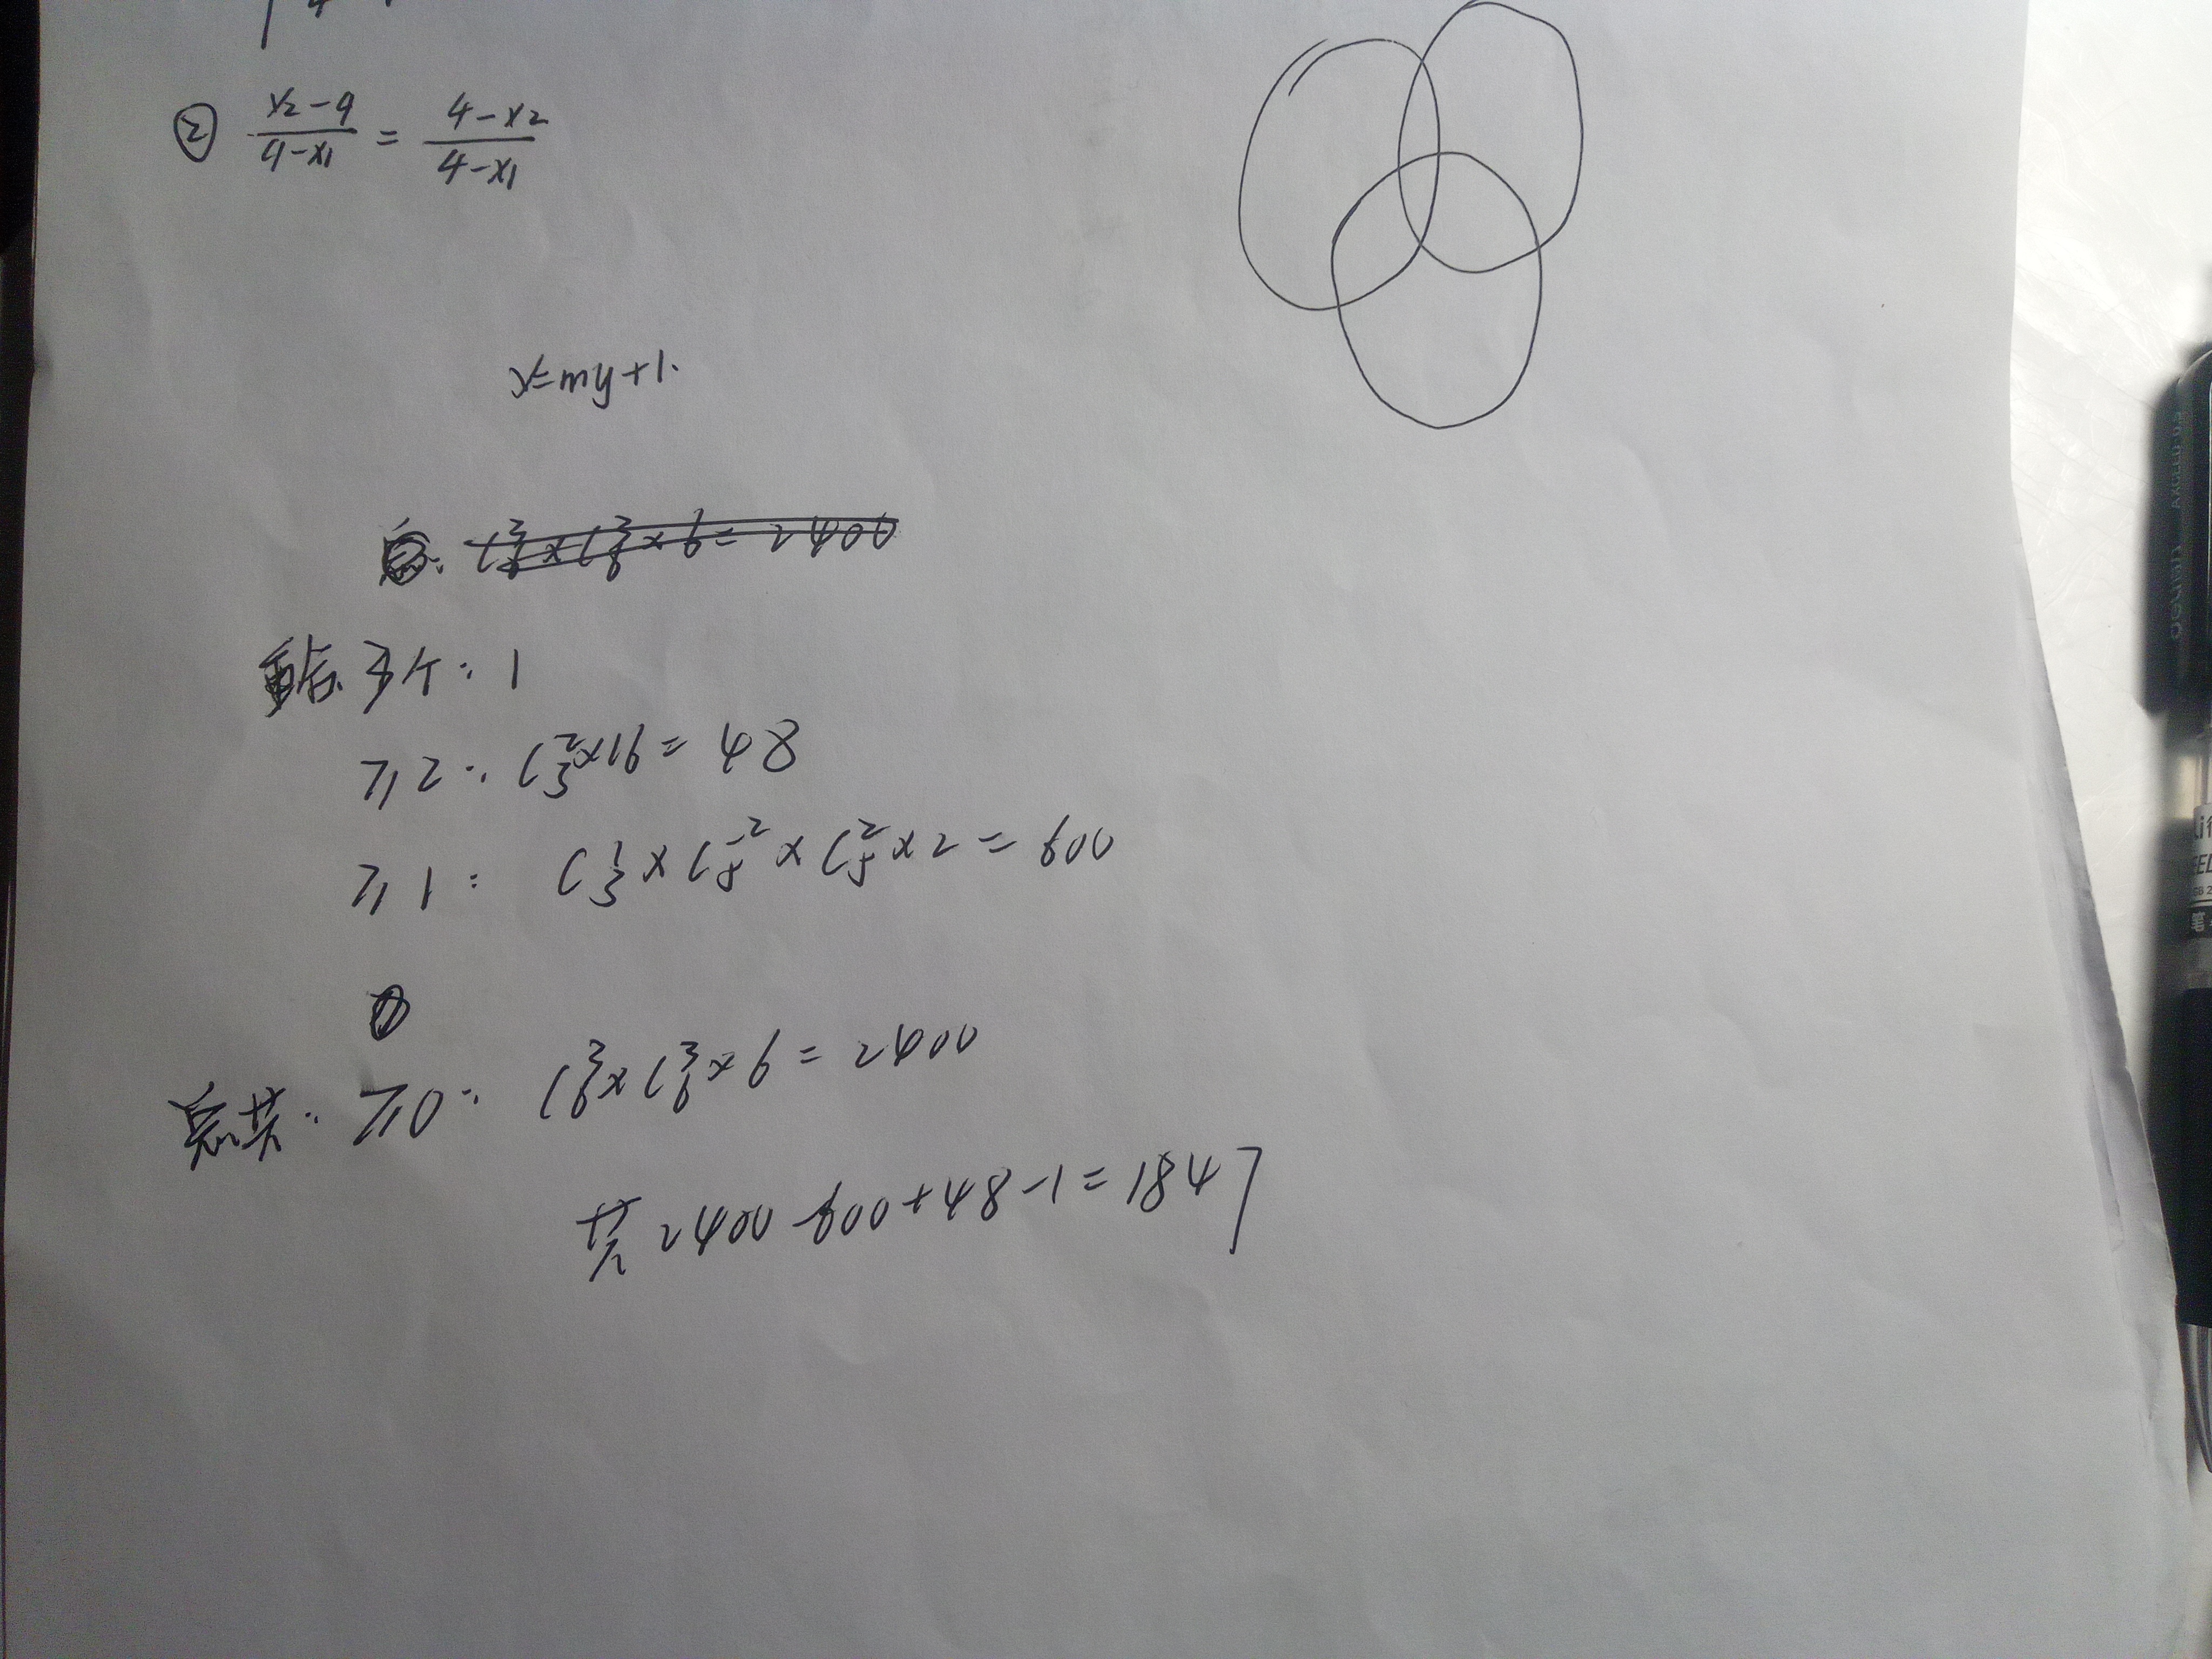 ② (x₂-9)/(9-x₁) = (4-x₂)/(4-x₁)
x=my+1.
C₆³×C₆³×6=2400
重合 3个: 1
≥2: C₃²×16=48
≥1: C₃¹×C₅²×C₅²×2=600
总共: ≥0: C₆³×C₆³×6=2400
共 2400-600+48-1=1847